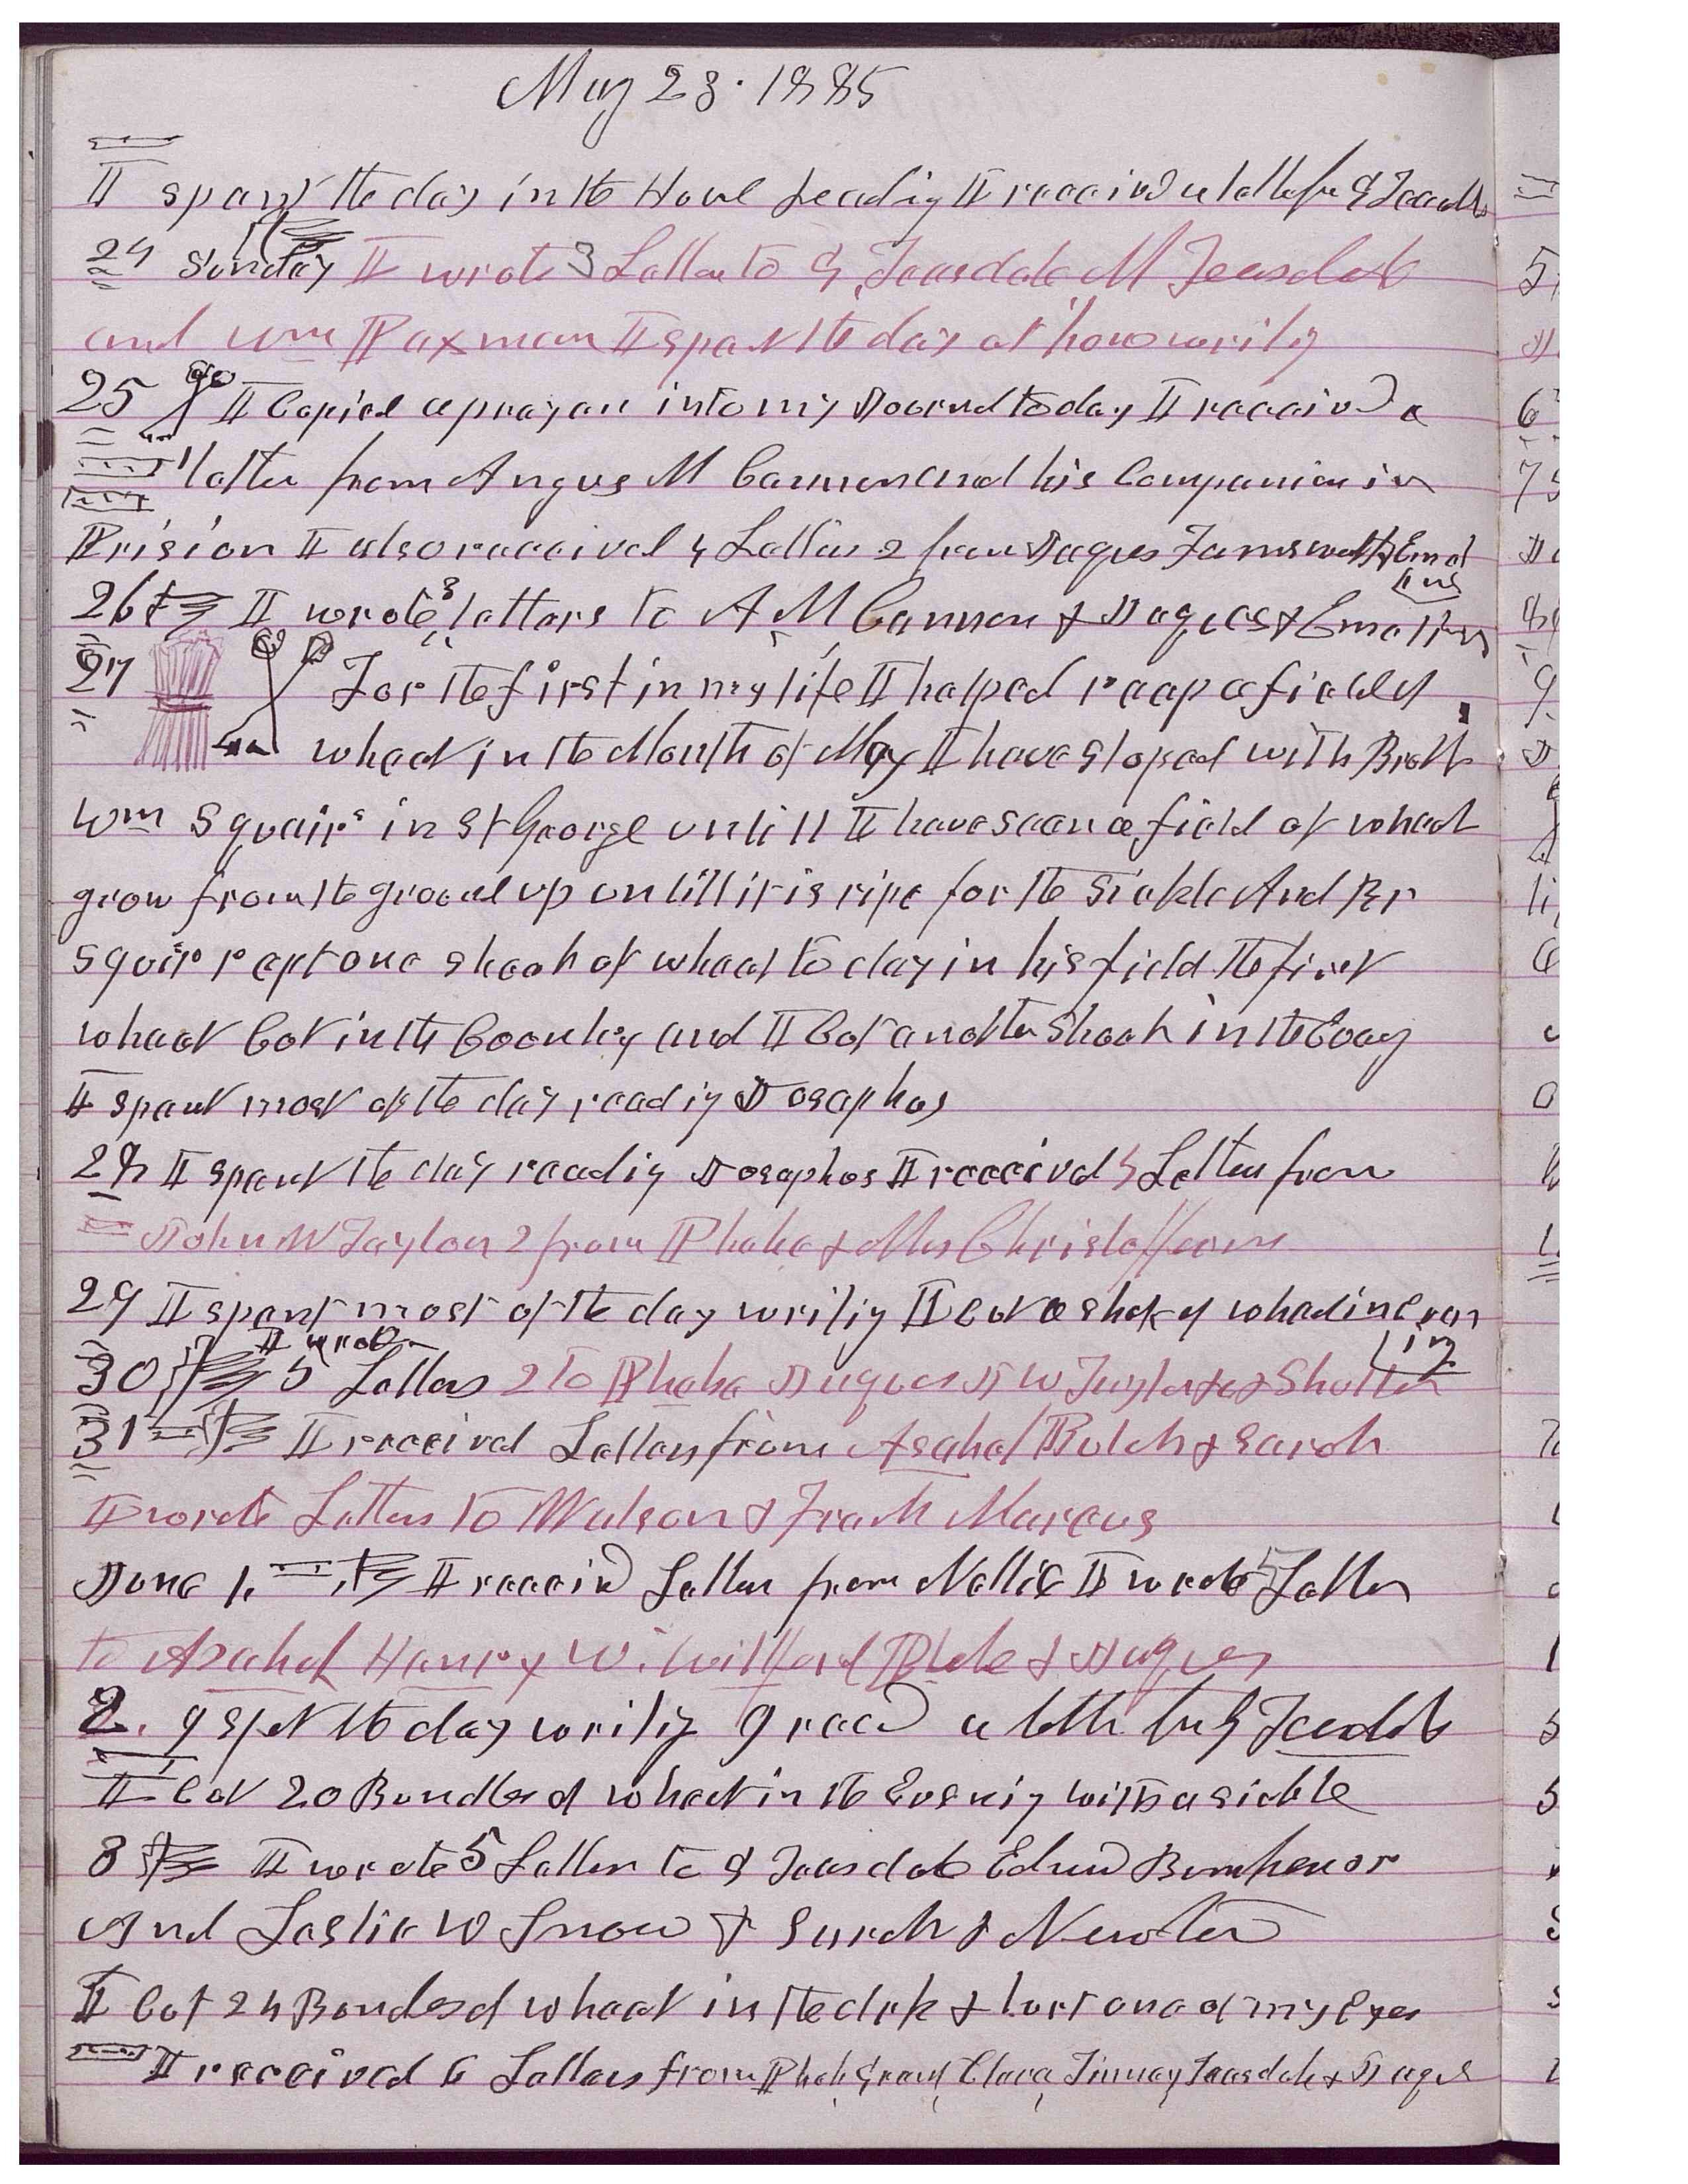 May 23. 1885
I spent the day in the House reading I received a letter from G Teasdale
24 Sunday I wrote 3 Letters to G, Teasdale M Teasdale
and Wm Paxman I spent the day at home writing
25 I Copied a prayer into my Journal to day I received a
letter from Angus M Cannon and his Companion in
Prision I also received 4 Letters 2 from Jaques Farnsworth & Emel
ine
26 I wrote 3 letters to A M Cannon & Jaques & Emeline
27 For the first in my life I helped reap a field of
wheat in the Month of May I have stoped with Broth
Wm Squair in St George untill I have seen a field of wheat
grow from the ground up untill it is ripe for the Sickle And Br
Squir rept one sheeh of wheat to day in his field the first
wheat Cut in the Country and I Cut another Sheeh in the
I spent most of the day reading Josephos
28 I spent the day reading Josephos I received 4 Letters from
John W Taylor 2 from Phebe & Mrs Christofferson
29 I spent most of the day writing I Cut a shok of wheat in Even
ing
I wrote
30 5 Letters 2 to Phebe Jaques J W Taylor & Sholten
31 I received Letters from Asahel Bulah & Sarah
I wrote Letters to Watson & Frank Marcus
June 1. I receivd Letter from Nellie I wrote 5 Letters
to Asahel Henry & W. Willford Phebe & Jaques
2. I spent the day writing I recd a letter from G Teasdale
I Cut 20 Bundles of wheat in the Evening with a sickle
3 I wrote 5 Letters to G Teasdale Edward Bunker or
And Leslie W Snow & Sarah & Newton
I Cut 24 Bundles of wheat in the dark & hurt one of my Eyes
I received 6 Letters from Pheb, Grant, Clara, Teasdale & Jaques